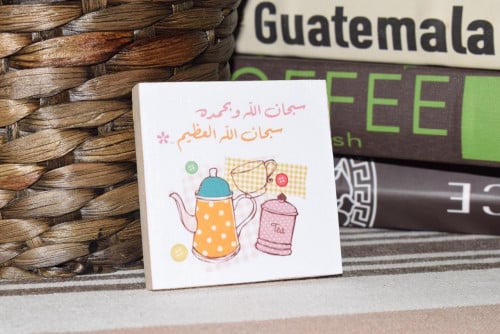 Guatemala
سبحان الله وبحمده
سبحان الله العظيم
FFEE
sh
Tea